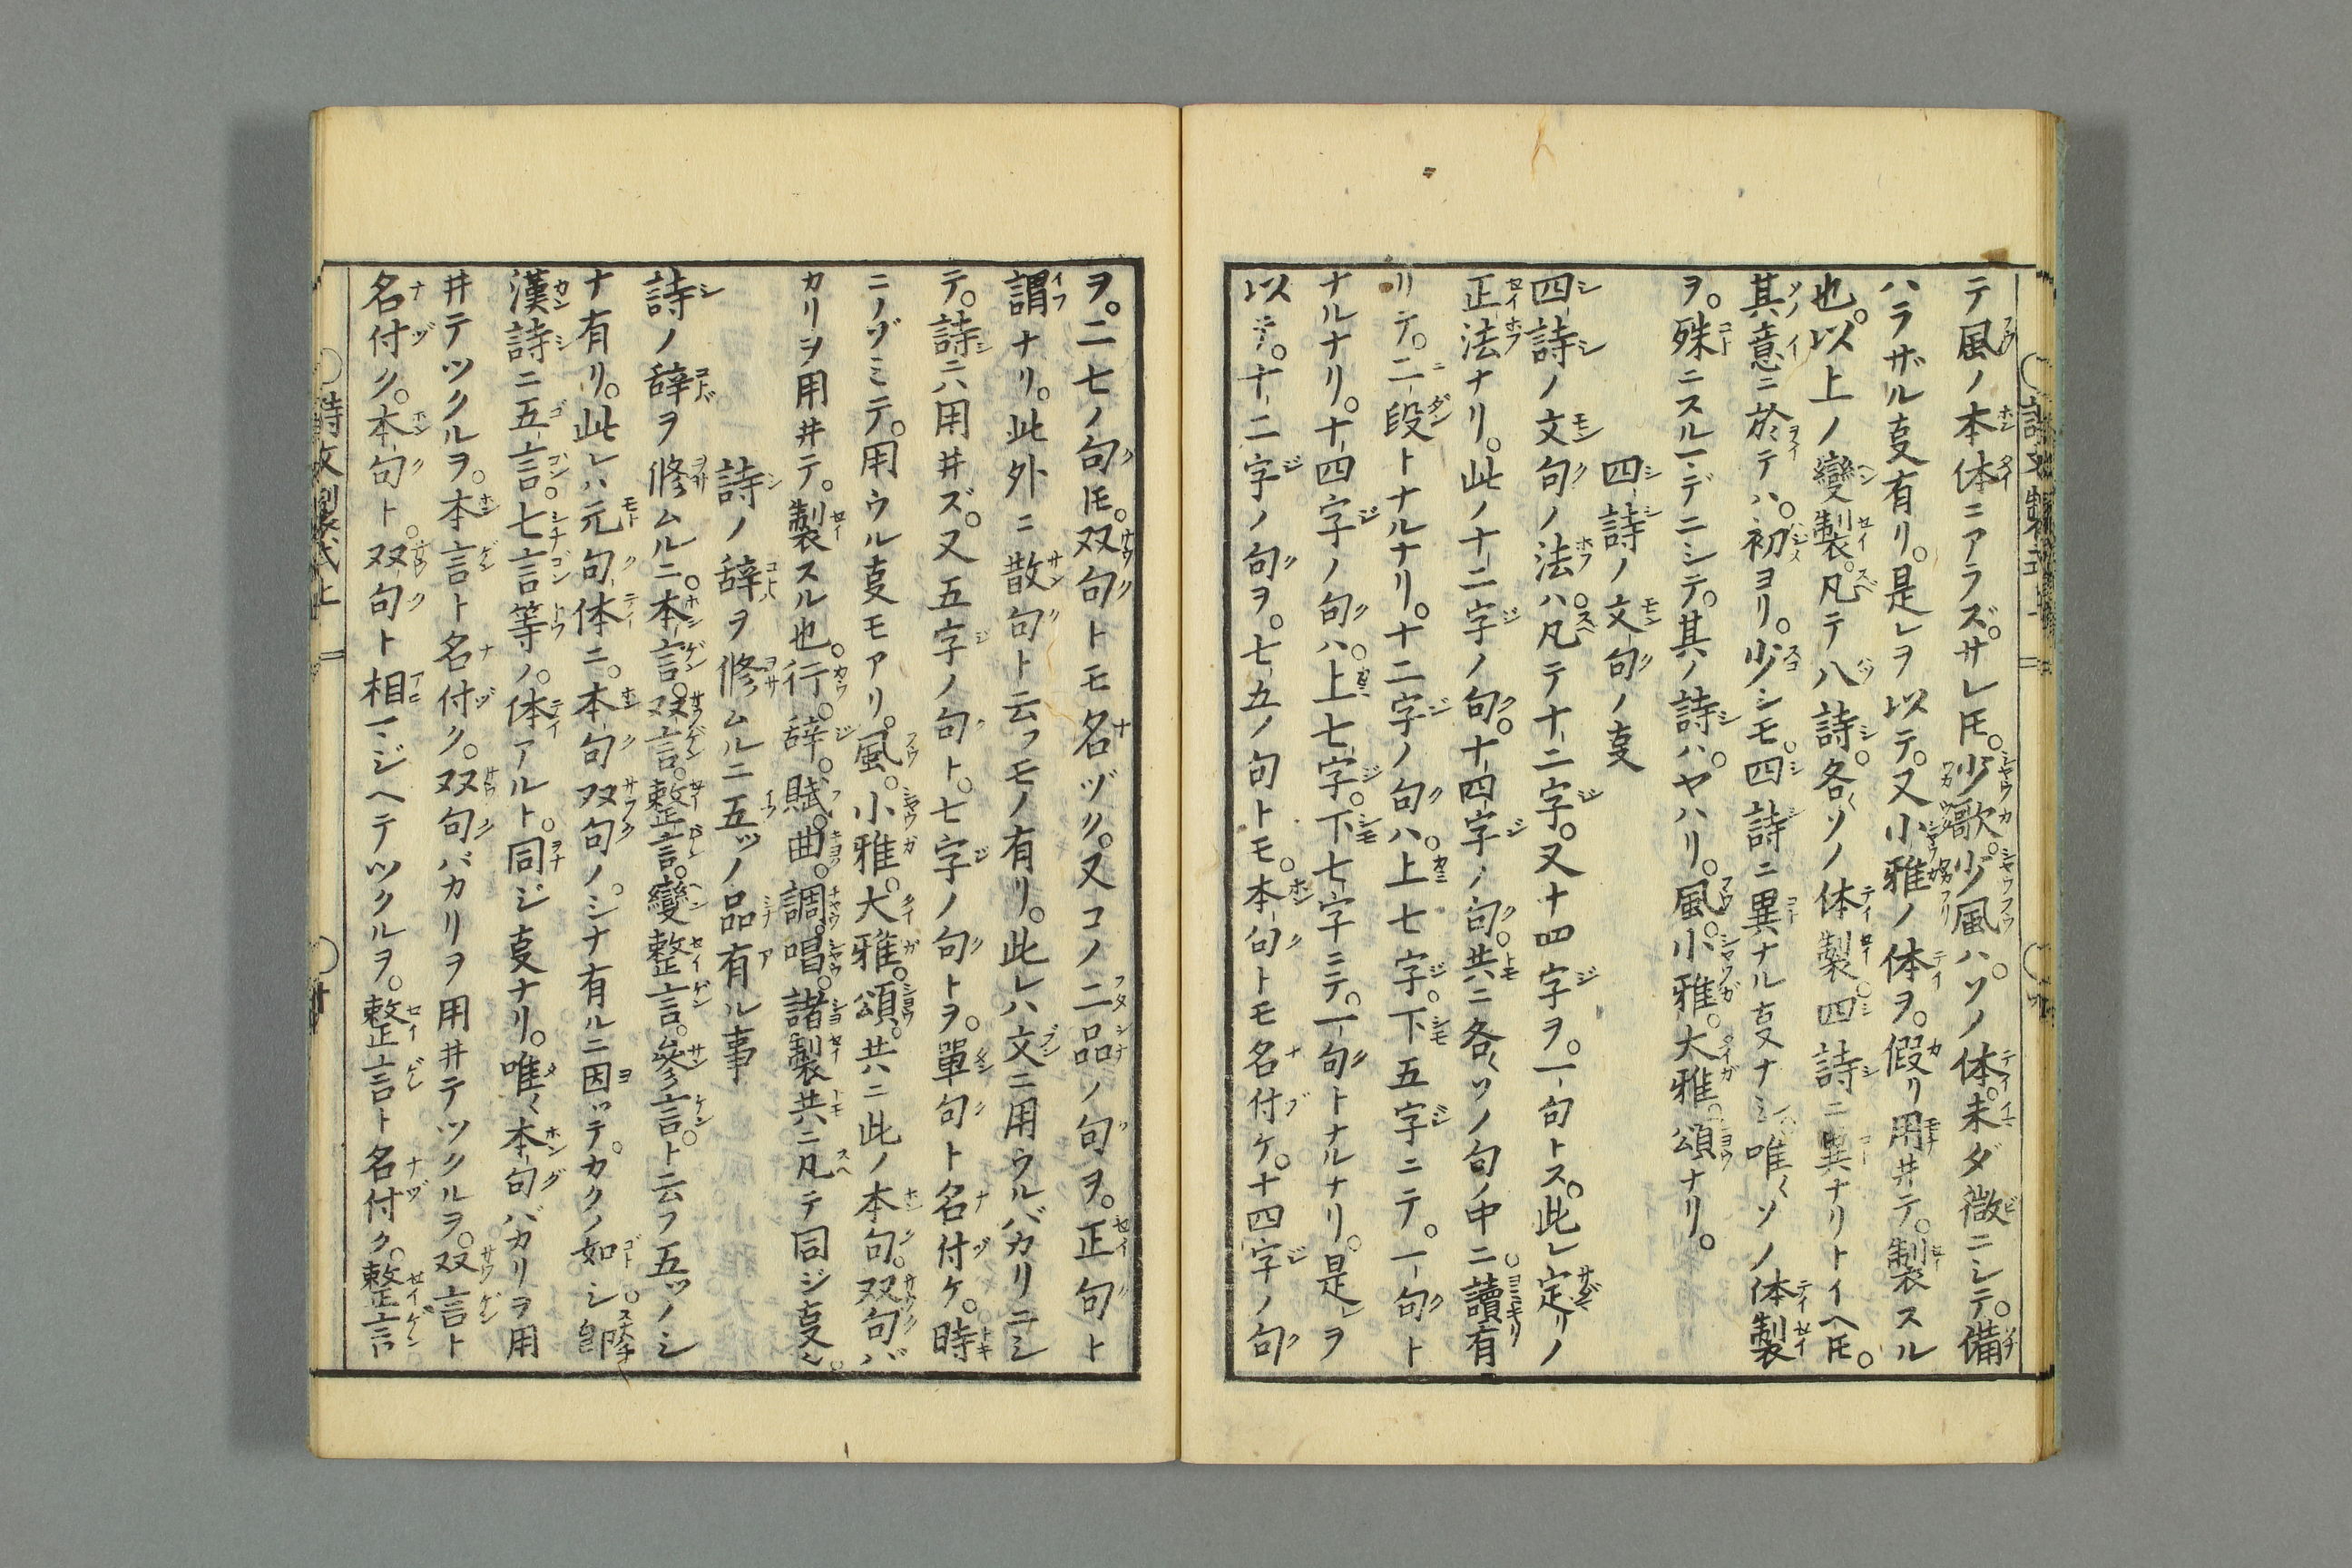 テ風ノ本体ニアラズ。サレ𪜈。少歌。少風ハ。ソノ体。未ダ微ニシテ。備
ハラザル㕝有リ。是レヲ以テ。又小雅ノ体ヲ。假リ用井テ。製スル
也。以上ノ變製。凡テ八詩。各〻ソノ体製。四詩ニ異ナリトイヘ𪜈。
其意ニ於テハ。初ヨリ。少シモ。四詩ニ異ナル㕝ナシ。唯〻ソノ体製
ヲ。殊ニスルーデニシテ。其ノ詩ハ。ヤハリ。風。小雅。大雅。頌ナリ。
四詩ノ文句ノ㕝
四詩ノ文句ノ法ハ。凡テ十二字。又十四字ヲ。一句トス。此レ定リノ
正法ナリ。此ノ十二字ノ句。十四字ノ句。共ニ各〻ソノ句ノ中ニ。讀有
リテ。二段トナルナリ。十二字ノ句ハ。上七字。下五字ニテ。一句ト
ナルナリ。十四字ノ句ハ。上七字。下七字ニテ。一句トナルナリ。是レヲ
以テ。十二字ノ句ヲ。七五ノ句トモ。本句トモ名付ケ。十四字ノ句
ヲ。二七ノ句𪜈。双句トモ名ヅク。又コノ二品ノ句ヲ。正句ト
謂ナリ。此外ニ散句ト云フモノ有リ。此レハ文ニ用ウルバカリニシ
テ。詩ニハ用井ズ。又五字ノ句ト。七字ノ句トヲ。單句ト名付ケ。時
ニノゾミテ。用ウル㕝モアリ。風。小雅。大雅。頌。共ニ此ノ本句。双句バ
カリヲ用井テ。製スル也。行。辞。賦。曲。調。唱。諸製共ニ凡テ同ジ㕝也。
詩ノ辞ヲ修ムルニ五ツノ品有ル事
詩ノ辞ヲ修ムルニ。本言。双言。整言。變整言。參言。ト云フ五ツノシ
ナ有リ。此レハ元句体ニ。本句双句ノ。シナ有ルニ因ッテ。カクノ如シ。即
漢詩ニ五言。七言等ノ。体アルト。同ジ㕝ナリ。唯〻本句バカリヲ用
井テツクルヲ。本言ト名付ク。双句バカリヲ用井テツクルヲ。双言ト
名付ク。本句ト。双句ト相マジヘテツクルヲ。整言ト名付ク。整言